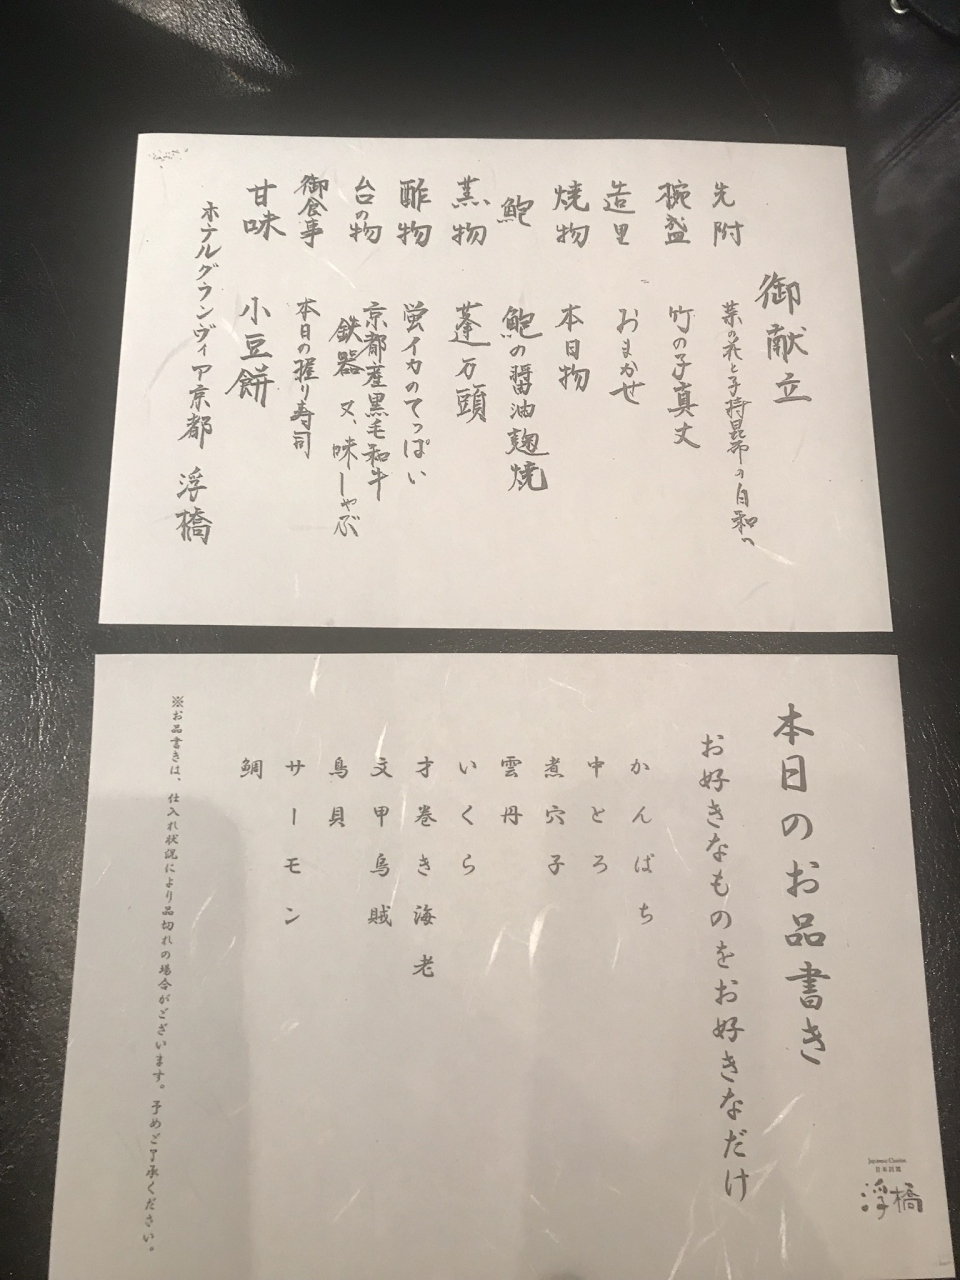 御献立
先附 菜の花と子持昆布の白和へ
椀盛 竹の子真丈
造里 おまかせ
焼物 本日物
鮑 鮑の醤油麹焼
蒸物 蓬万頭
酢物 蛍イカのてっぱい
台の物 京都産黒毛和牛
鉄器 又、味しゃぶ
御食事 本日の握り寿司
甘味 小豆餅
ホテルグランヴィア京都 浮橋
本日のお品書き
お好きなものをお好きなだけ
かんぱち
中とろ
煮穴子
雲丹
いくら
才巻き海老
文甲烏賊
鳥貝
サーモン
鯛
※お品書きは、仕入れ状況により品切れの場合がございます。予めご了承ください。
Japanese Cuisine
日本料理
浮橋